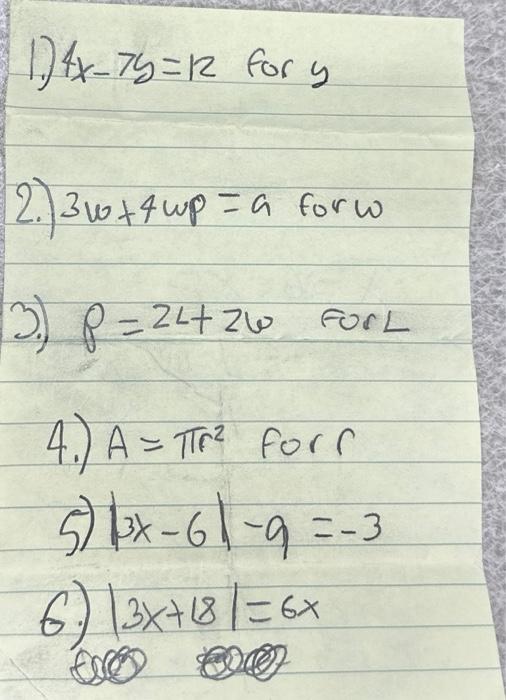 1.) 4x - 7y = 12 for y
2.) 3w + 4wp = a for w
3.) P = 2L + 2w For L
4.) A = πr² for r
5) |3x - 6| - 9 = -3
6.) |3x + 18| = 6x